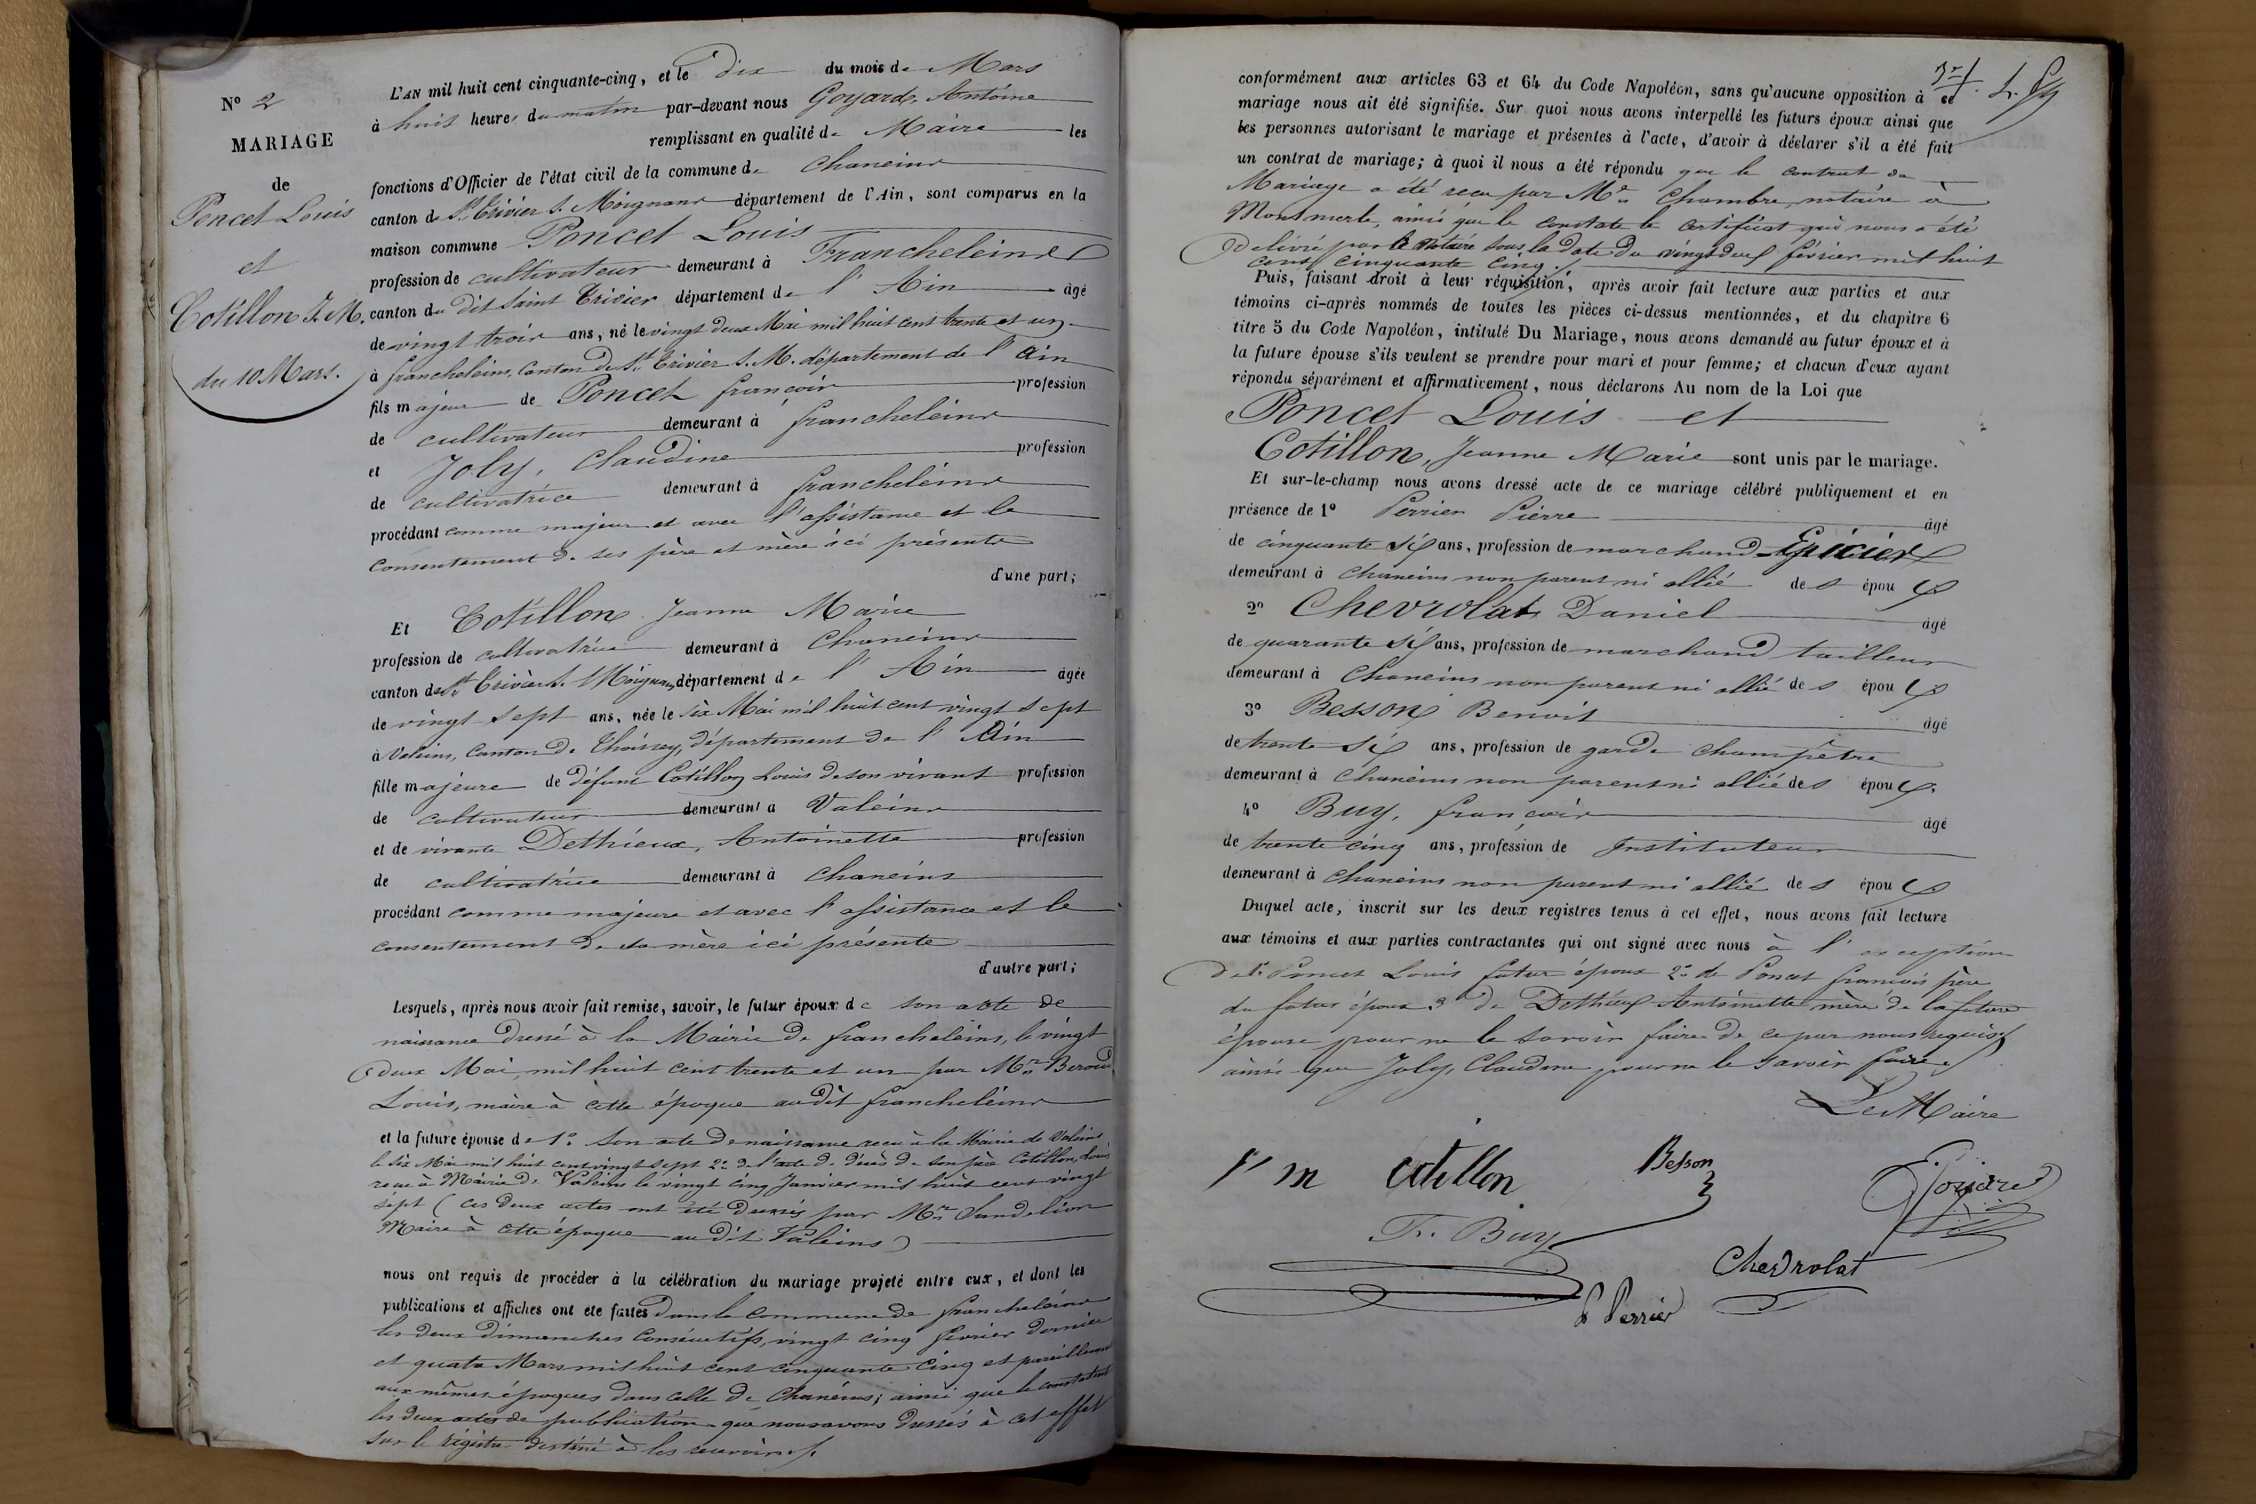 N° 2
MARIAGE
de
Poncet Louis
et
Cotillon J. M.
du 10 Mars.
L'AN mil huit cent cinquante-cinq, et le dix du mois de Mars
à huit heures du matin par-devant nous Goyard, Antoine
remplissant en qualité de Maire les
fonctions d'Officier de l'état civil de la commune de Chaneins
canton de St Trivier s. Moignans département de l'Ain, sont comparus en la
maison commune Poncet Louis
profession de cultivateur demeurant à Francheleins
canton du dit Saint Trivier département de l'Ain âgé
de vingt trois ans, né le vingt deux Mai mil huit cent trente et un
à francheleins, Canton de St Trivier s. M. département de l'Ain
fils majeur de Poncet françois profession
de cultivateur demeurant à francheleins
et Joly, Claudine profession
de cultivatrice demeurant à francheleins
procédant comme majeur et avec l'assistance et le
consentement de ses père et mère ici présents
d'une part;
Et Cotillon Jeanne Marie
profession de cultivatrice demeurant à Chaneins
canton de St Trivier s. Moignans département de l'Ain âgée
de vingt sept ans, née le six Mai mil huit cent vingt sept
à Valeins, Canton de Thoissey, département de l'Ain
fille majeure de défunt Cotillon Louis de son vivant profession
de cultivateur demeurant à Valeins
et de vivante Dethieux, Antoinette profession
de cultivatrice demeurant à Chaneins
procédant comme majeure et avec l'assistance et le
consentement de sa mère ici présente
d'autre part;
Lesquels, après nous avoir fait remise, savoir, le futur époux de son acte de
naissance dressé à la Mairie de francheleins, le vingt
deux Mai mil huit cent trente et un par Mr Beroud
Louis, maire à cette époque au dit francheleins
et la future épouse de 1° Son acte de naissance reçu à la Mairie de Valeins
le six Mai mil huit cent vingt sept 2° de l'acte de décès de son père Cotillon, Louis
reçu à Mairie de Valeins le vingt cinq Janvier mil huit cent vingt
sept (ces deux actes ont été dressés par Mr
Maire à cette époque au dit Valeins)
nous ont requis de procéder à la célébration du mariage projeté entre eux, et dont les
publications et affiches ont été faites dans la commune de francheleins
les deux dimanches consécutifs, vingt cinq février dernier
et quatre Mars mil huit cent cinquante cinq et pareillement
aux mêmes époques dans celle de Chaneins; ainsi que le constatent
les deux actes de publication que nous avons dressés à cet effet
sur le registre destiné à les recevoir
conformément aux articles 63 et 64 du Code Napoléon, sans qu'aucune opposition à ce
mariage nous ait été signifiée. Sur quoi nous avons interpellé les futurs époux ainsi que
les personnes autorisant le mariage et présentes à l'acte, d'avoir à déclarer s'il a été fait
un contrat de mariage; à quoi il nous a été répondu que le contrat de
Mariage a été reçu par Me Chambre, notaire à
Montmerle, ainsi que le constate le certificat qui nous a été
délivré par le Notaire sous la date du vingt deux février mil huit
cent cinquante cinq.
Puis, faisant droit à leur réquisition, après avoir fait lecture aux parties et aux
témoins ci-après nommés de toutes les pièces ci-dessus mentionnées, et du chapitre 6
titre 5 du Code Napoléon, intitulé Du Mariage, nous avons demandé au futur époux et à
la future épouse s'ils veulent se prendre pour mari et pour femme; et chacun d'eux ayant
répondu séparément et affirmativement, nous déclarons Au nom de la Loi que
Poncet Louis et
Cotillon, Jeanne Marie sont unis par le mariage.
Et sur-le-champ nous avons dressé acte de ce mariage célébré publiquement et en
présence de 1° Perrier Pierre âgé
de cinquante six ans, profession de marchand Epicier
demeurant à Chaneins non parent ni allié des époux
2° Chevrolat, Daniel âgé
de quarante six ans, profession de marchand tailleur
demeurant à Chaneins non parent ni allié des époux
3° Besson Benoit âgé
de trente six ans, profession de garde Champêtre
demeurant à Chaneins non parent ni allié des époux.
4° Buy, françois âgé
de trente cinq ans, profession de Instituteur
demeurant à Chaneins non parent ni allié des époux
Duquel acte, inscrit sur les deux registres tenus à cet effet, nous avons fait lecture
aux témoins et aux parties contractantes qui ont signé avec nous à l'exception
de 1° Poncet Louis futur époux 2° de Poncet francois père
du futur époux 3° de Dethieux Antoinette mère de la future
épouse pour ne le savoir faire de ce par nous requis
ainsi que Joly, Claudine pour ne le savoir faire
Le Maire
j m cotillon
Besson
Goyard
Fr. Buy
Chevrolat
P Perrier